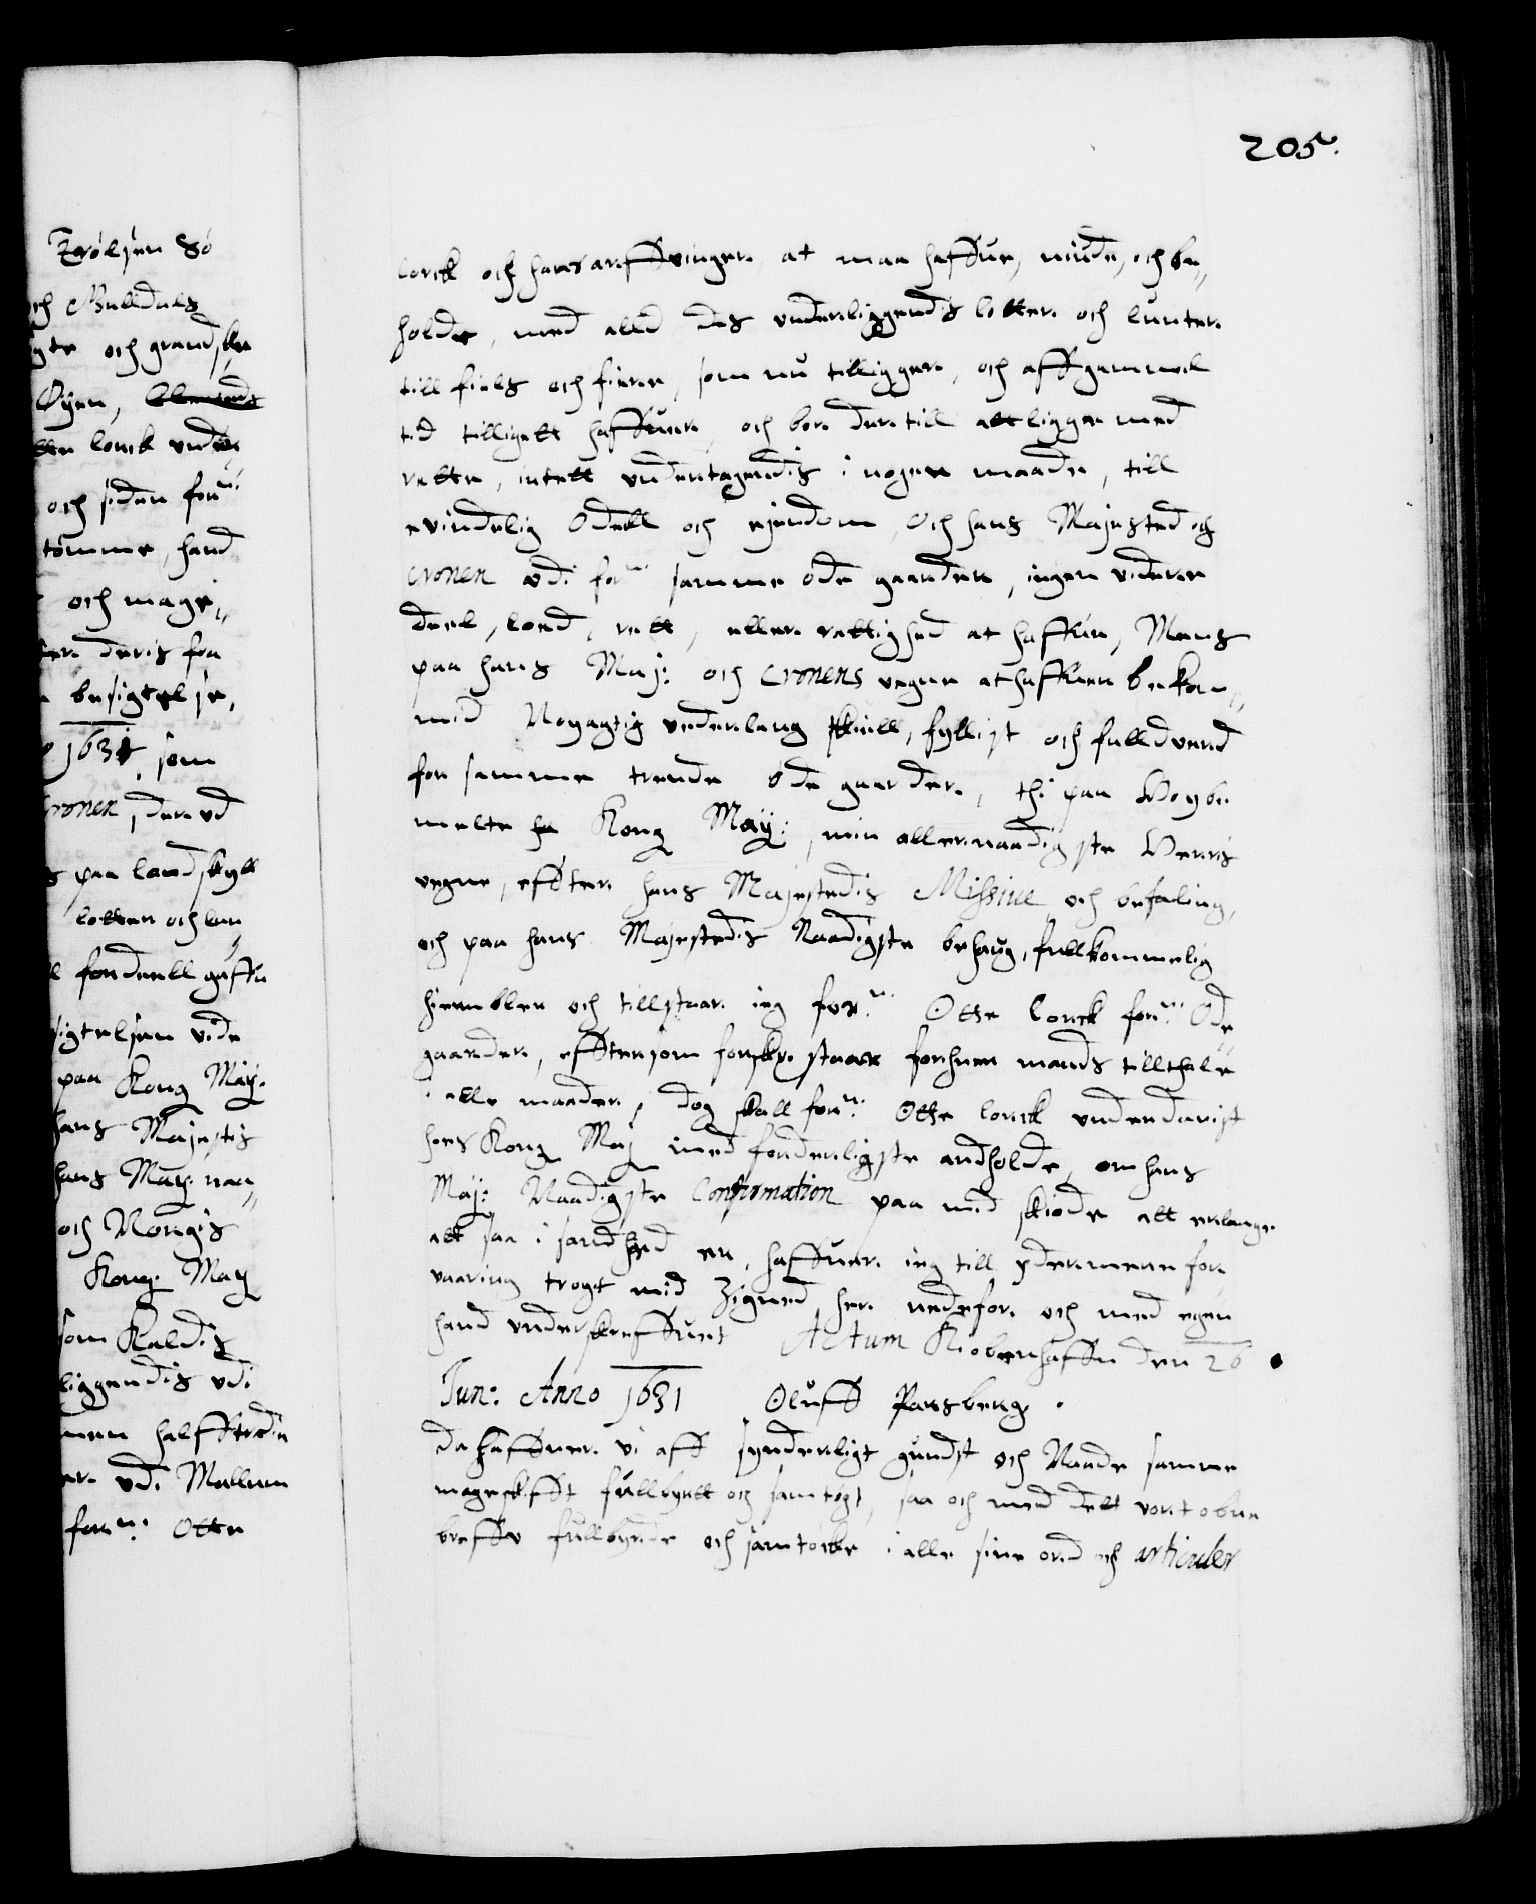 205.
Trolsen Sö
och Bulldals
gte och grandske
Öyen,
Otte lorck under
och siden forne:
tömme, hand
och mage,,
deris fra
besigtelse,
1631, som
Cronen, der ud
paa landskyll
lotter och lun
fordeell gaffu
sigtelsen vide
paa Kong May.
hans Majestis
hans May: naa,,
och Norgis
Kong. May
som Kaldis
liggendis udi
halfftredie
udi Mallum
forne: Otte
lorck och hans arffvinger, at maa haffue, niude, och be,,
holde, med alld des underliggendis lotter och lunter
till fiels och fiere, som nu tilligger, och aff gammel
tid tilligett haffuer, och bör der till att ligge med
rette, intett undertagendis i nogen maade, till
evindelig Odell och ejendom, Och hans Majested och
Cronen udi forne: samme öde gaarder, ingen videre
deel, loed, rett, eller rettighed at haffue, Mens
paa hans Maj: och Cronens vegne at haffuer bekom,,
mid Nöyagtig vederlaug skiell, fyllist och fulld verd
for samme trende öde gaarder, thi paa Höybe
melte Kong May:, min allernaadigste Herris
vegne, effter hans Majestedis Missive och befaling,
och paa hans Majestedis Naadigste behaug, fullkommelig
hiembler och tillstaar ieg forne: Otte lorck forne: Öde,,
gaarder, efftersom forskr. staar for huer mands tillthale
i alle maader, dog skall forne: Otte lorck underdanigst
hoes Kong May med forderligste andholde, om hans
Maj: Naadigste Confirmation paa mid skiöde att erlange
att saa i sandhed er, haffuer ieg till ydermeere for
vaaring trögt mid Zigned her nedefor och med egen
hand underskreffuet Actum Kiöbenhaffn den 26
Jun: Anno 1631 Oluff Parsberg.
da haffuer vi aff synderligt gundst och Naade samme
mageskifft fullbyrtt och samtögt, saa och med dett vort obne
breffv fullbyrde och samtöcke i alle sine ord och articuler